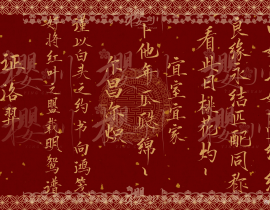 良缘永结匹配同称
看此日桃花灼灼
宜室宜家
卜他年瓜瓞绵绵
尔昌尔炽
谨以白头之约书向鸿笺
好将红叶之盟载明鸳谱
证